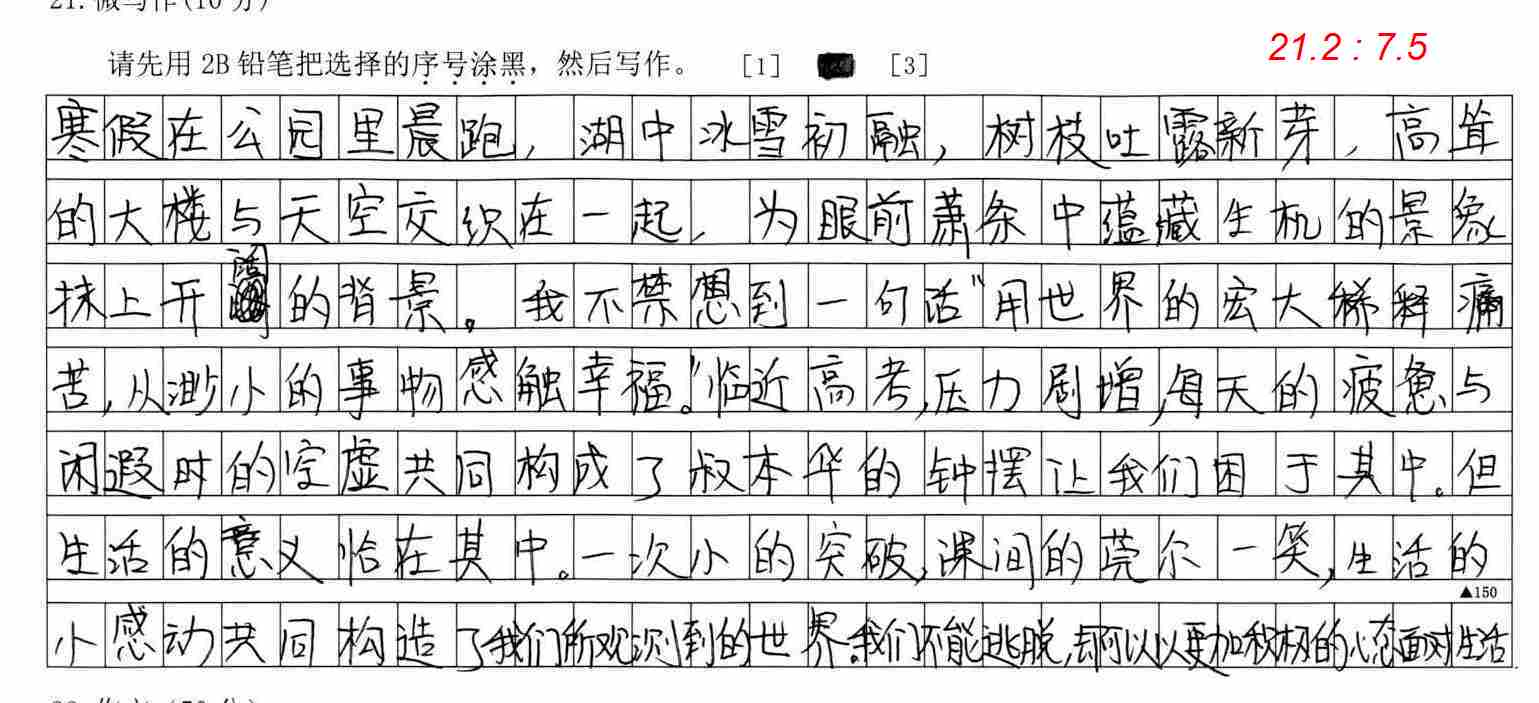 21. 微写作(10 分)
请先用 2B 铅笔把选择的序号涂黑，然后写作。 [1] [3]
21.2 : 7.5
寒假在公园里晨跑，湖中冰雪初融，树枝吐露新芽，高耸
的大楼与天空交织在一起，为眼前萧条中蕴藏生机的景象
抹上开阔的背景。我不禁想到一句话"用世界的宏大稀释痛
苦，从渺小的事物感触幸福。"临近高考，压力剧增，每天的疲惫与
闲遐时的空虚共同构成了叔本华的钟摆让我们困于其中。但
生活的意义恰在其中。一次小的突破，课间的莞尔一笑，生活的
▲150
小感动共同构造了我们所观测到的世界。我们不能逃脱，却可以以更加积极的心态面对生活